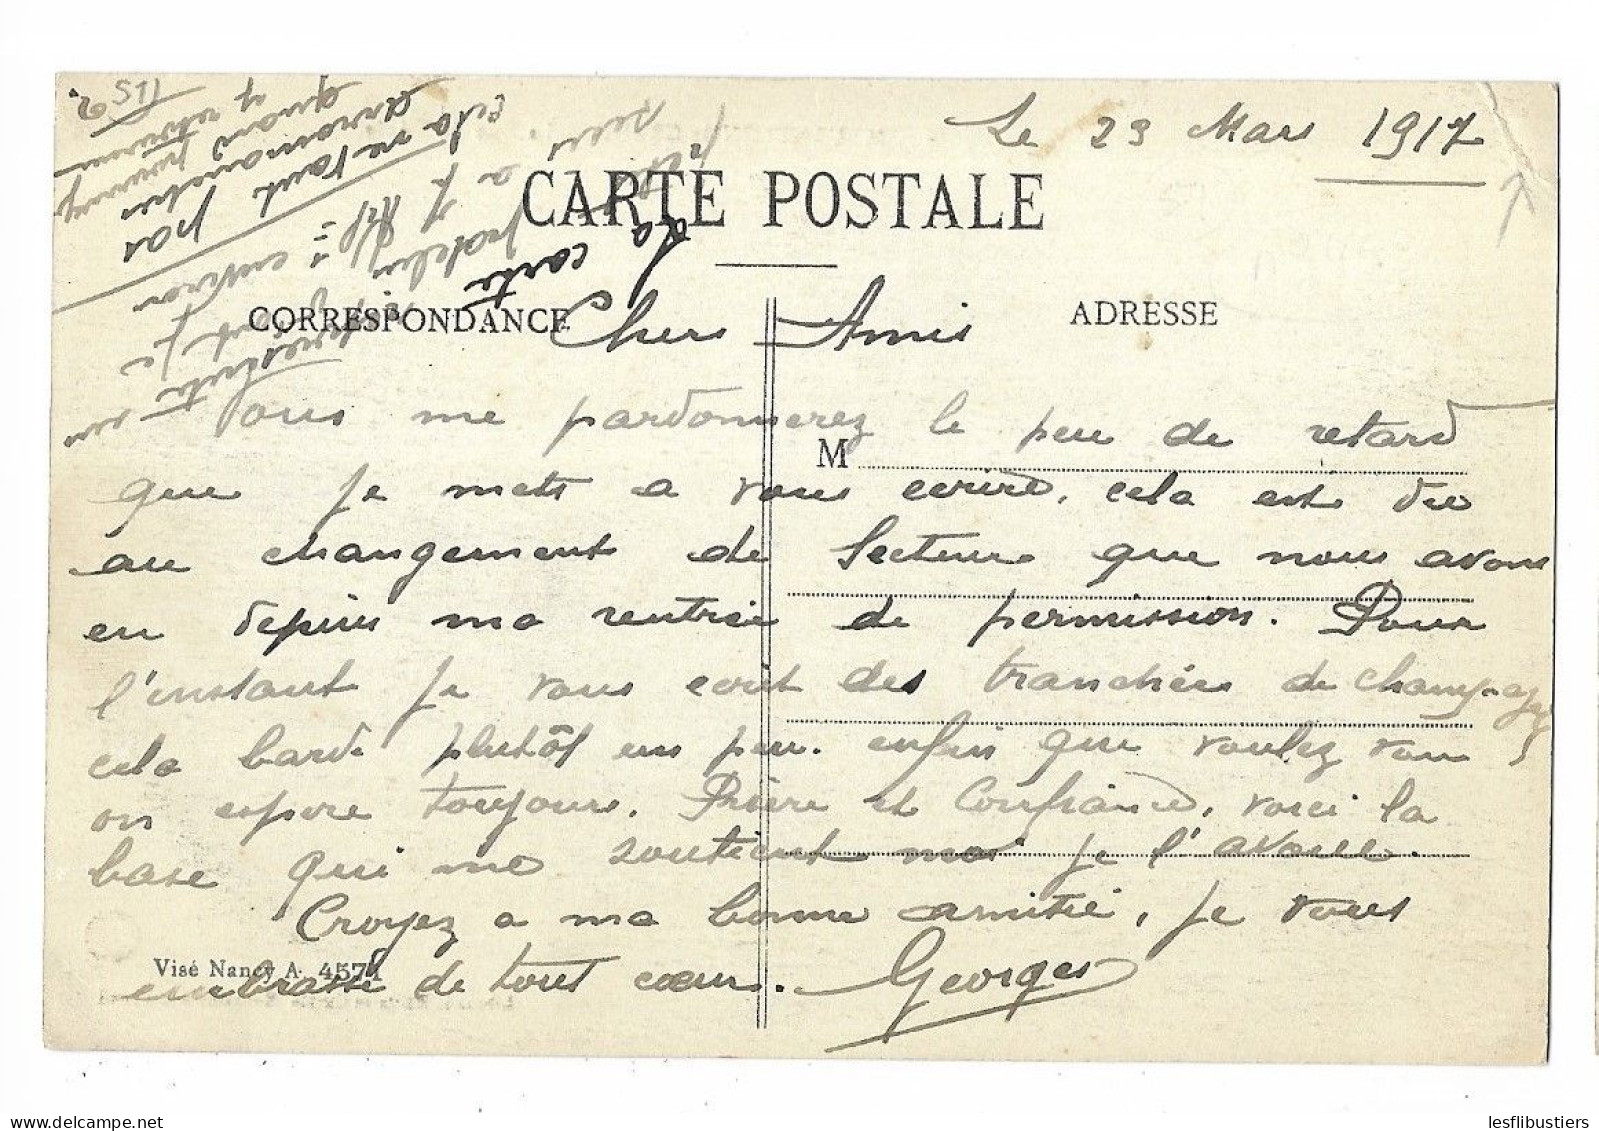 Le 23 Mars 1917
CARTE POSTALE
CORRESPONDANCE
ADRESSE
Chers Amis
Vous me pardonnerez le peu de retard
M
que je mets a vous ecrire, cela est du
au changement de secteur que nous avons
eu depuis ma rentrée de permission. Pour
l'instant je vous ecrit des tranchées de champagne
cela barde plutôt un peu. enfin que voulez vous
on espere toujours. Prière et Confiance, voici la
base qui me soutient moi je l'avoue.
Croyez a ma bonne amitié, je vous
Visé Nancy A. 4571
embrasse de tout cœur. Georges
La carte
cela ne vaut pas
quand
lesflibustiers